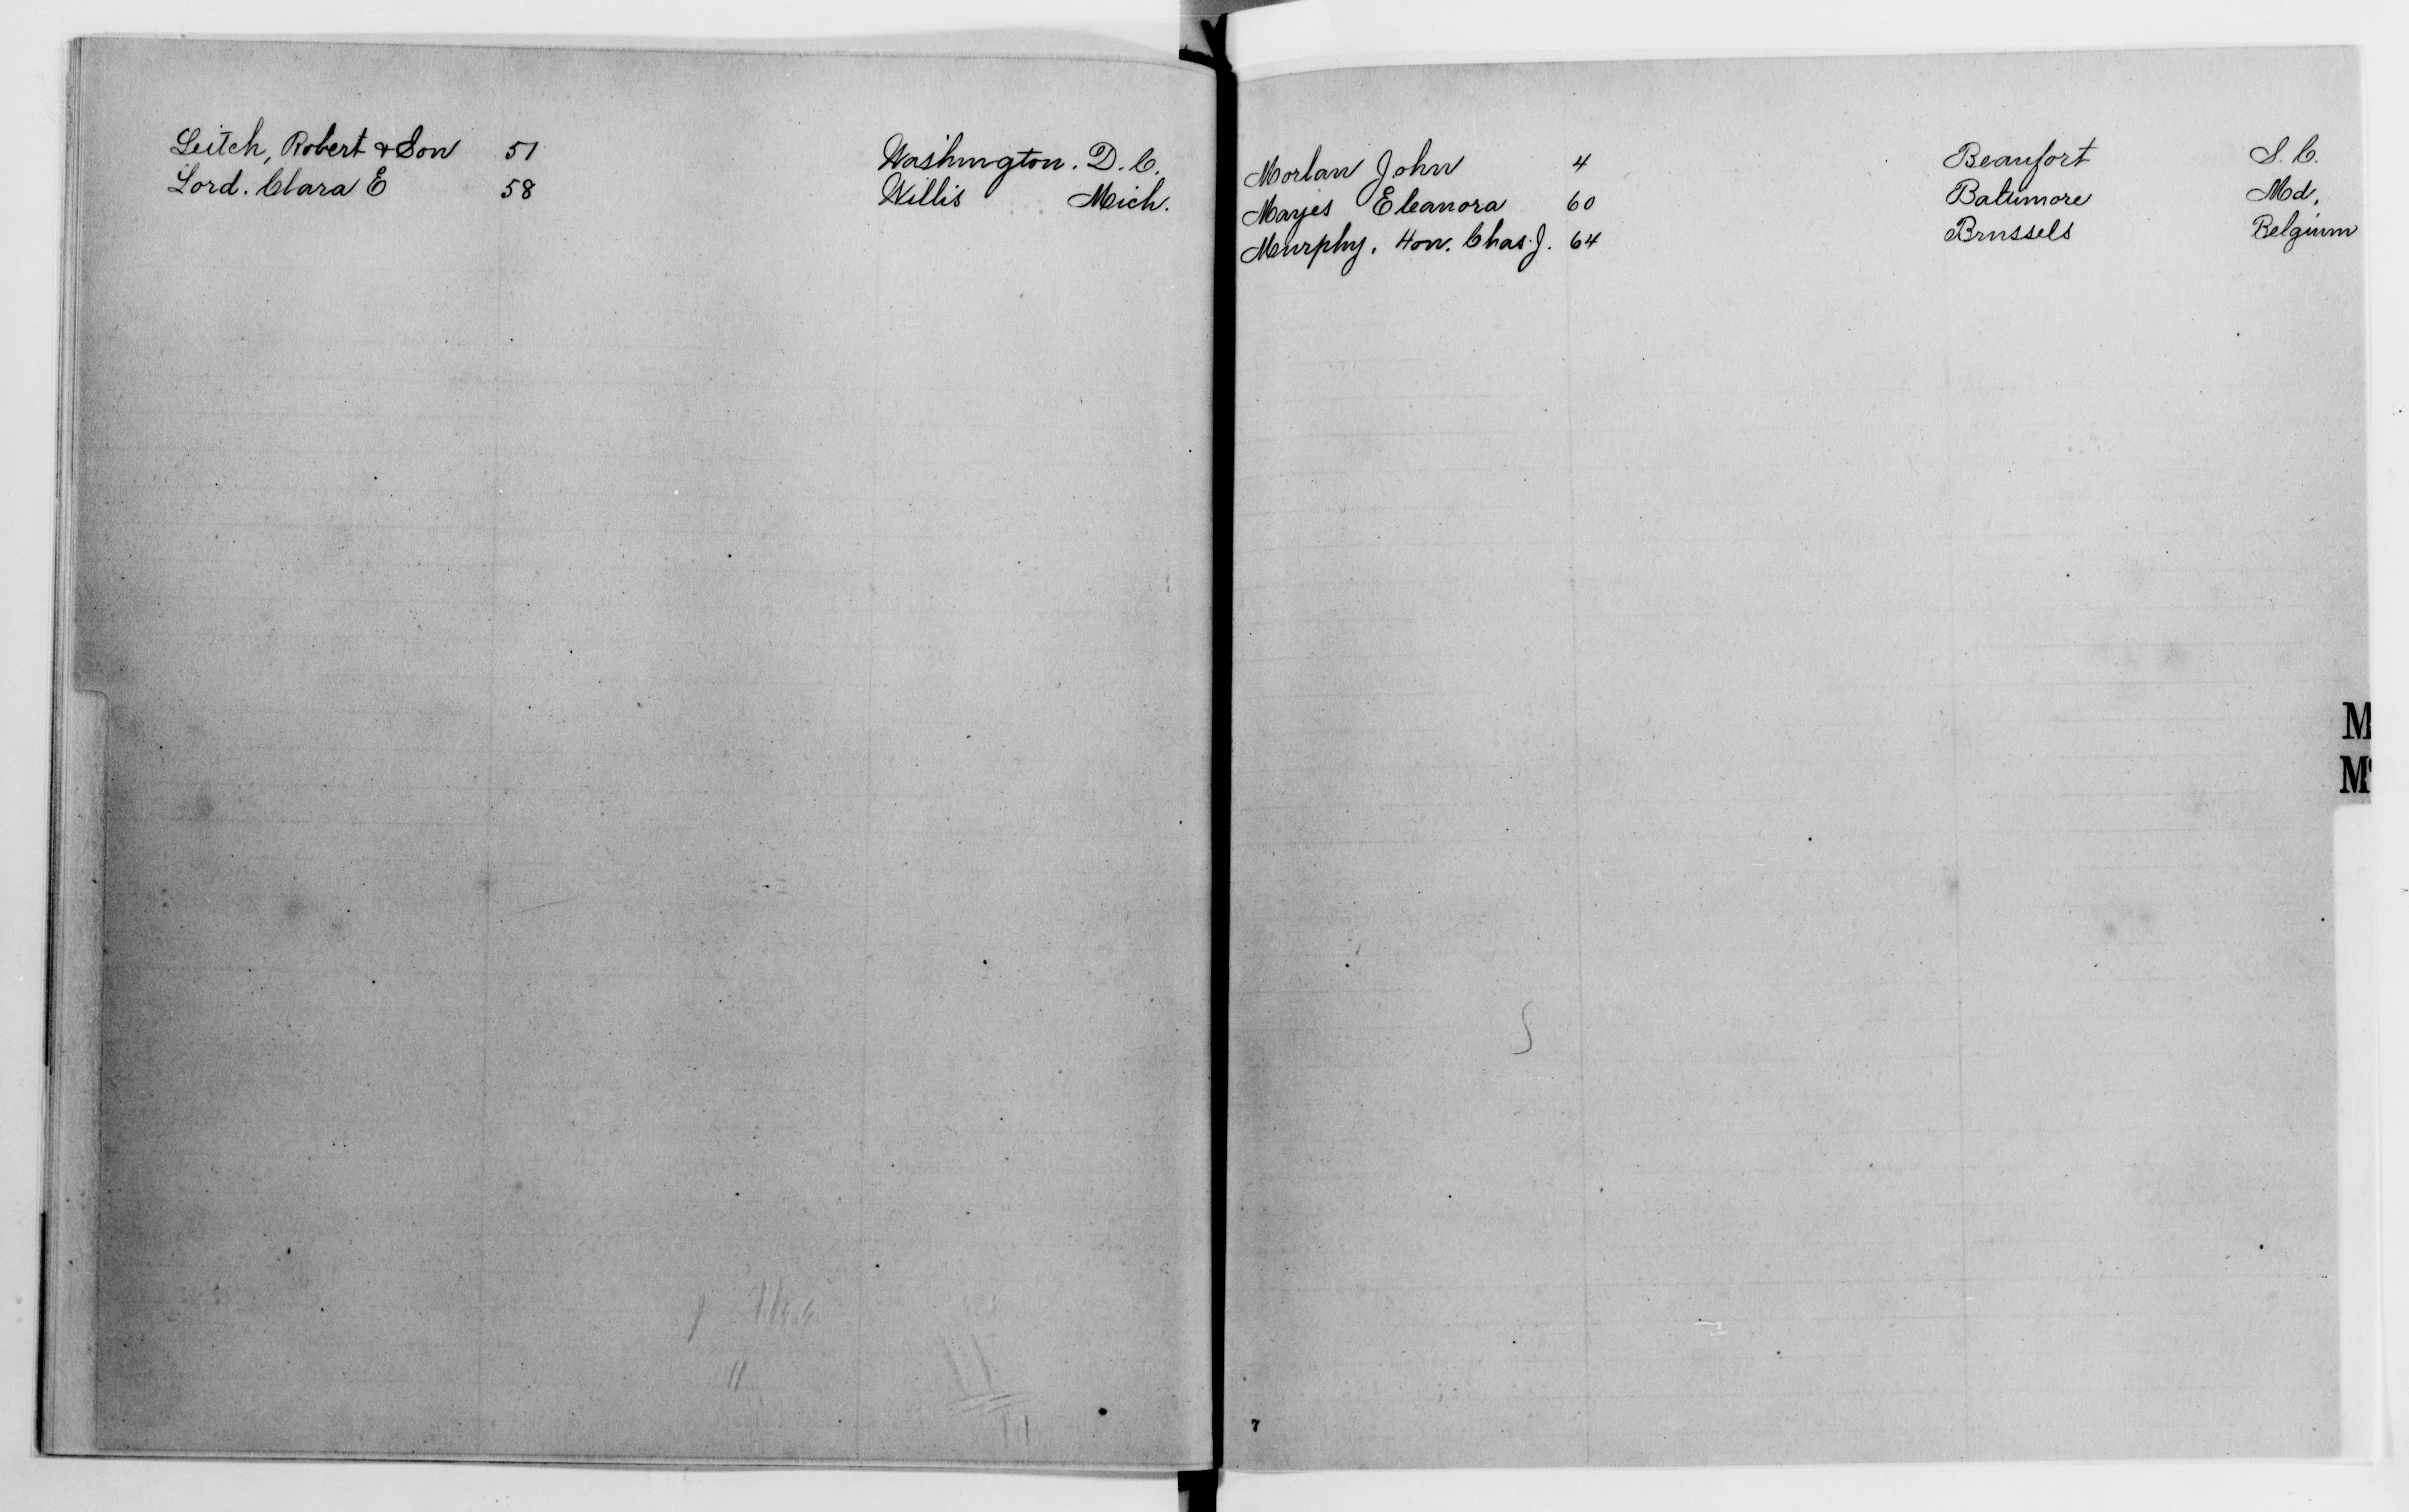 Leitch, Robert & Son 51 Washington. D. C.
Lord. Clara E 58 Willis Mich.
Morlan John 4 Beaufort S. C.
Mayes Eleanora 60 Baltimore Md,
Murphy, Hon. Chas. J. 64 Brussels Belgium
M
Mc
7